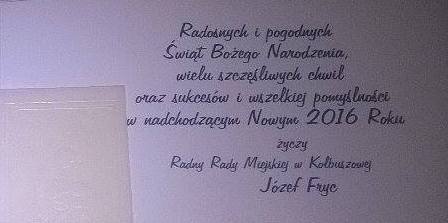 Radosnych i pogodnych
Świąt Bożego Narodzenia,
wielu szczęśliwych chwil
oraz sukcesów i wszelkiej pomyślności
w nadchodzącym Nowym 2016 Roku
życzy
Radny Rady Miejskiej w Kolbuszowej
Józef Fryc